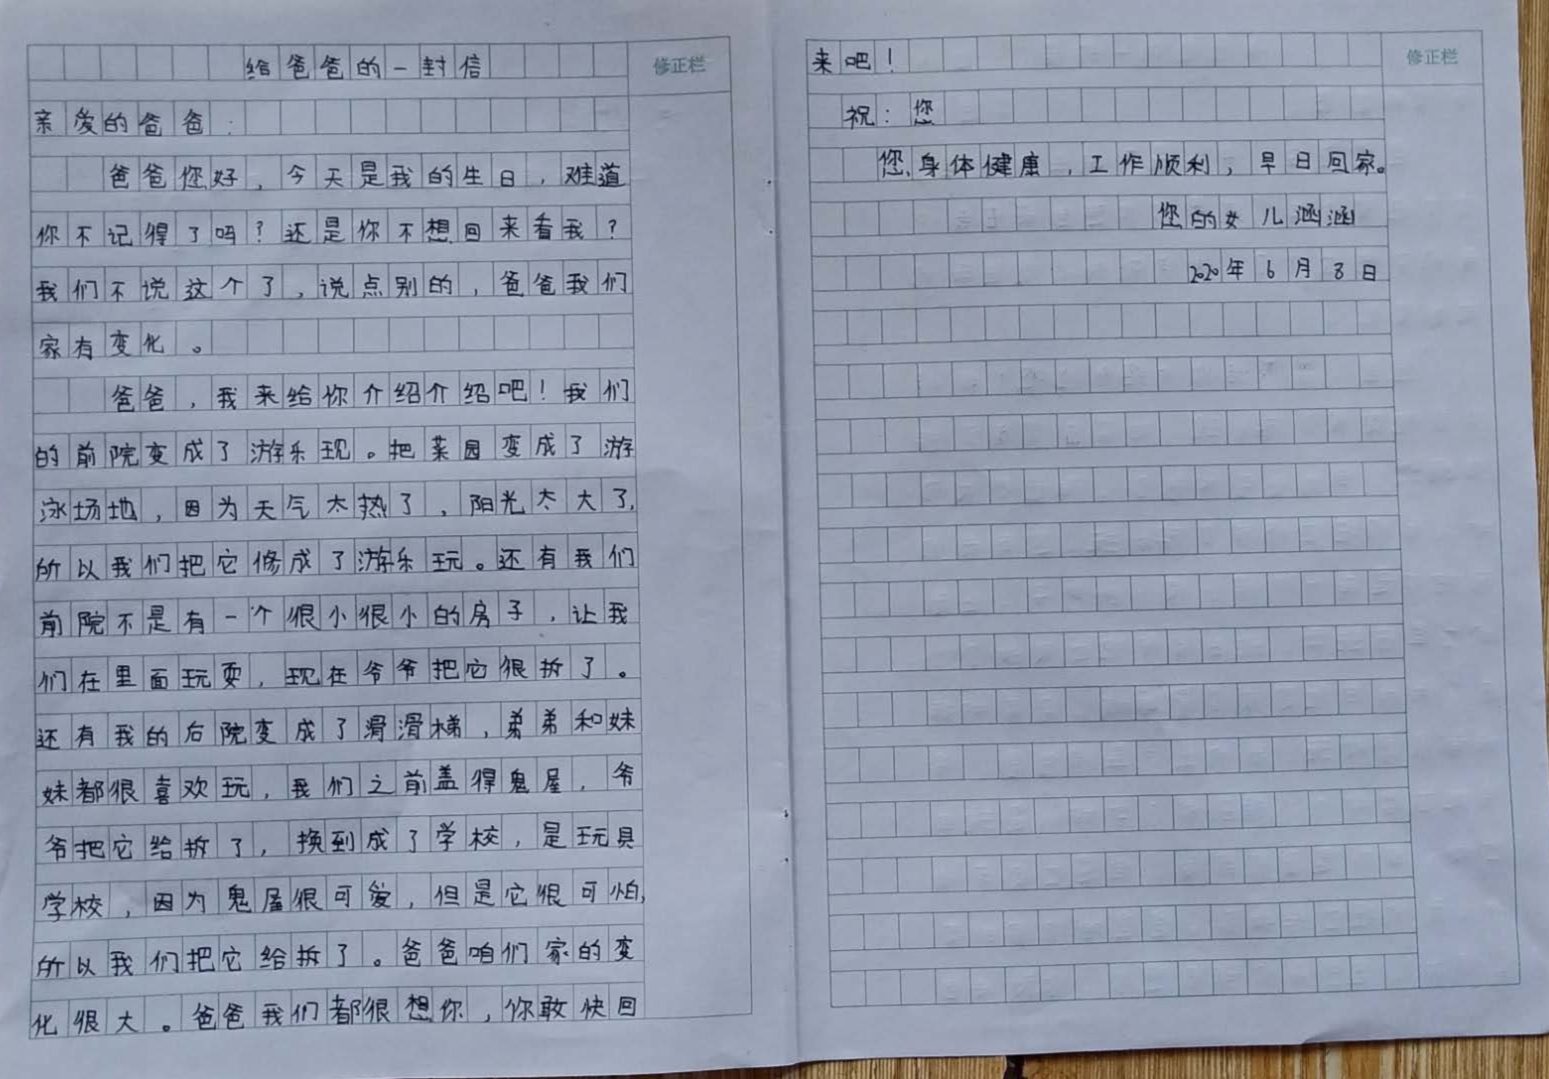 给爸爸的一封信
修正栏
亲爱的爸爸：
爸爸您好，今天是我的生日，难道
你不记得了吗？还是你不想回来看我？
我们不说这个了，说点别的，爸爸我们
家有变化。
爸爸，我来给你介绍介绍吧！我们
的前院变成了游乐现。把菜园变成了游
泳场地，因为天气太热了，阳光太大了，
所以我们把它修成了游乐玩。还有我们
前院不是有一个很小很小的房子，让我
们在里面玩耍，现在爷爷把它很拆了。
还有我的后院变成了滑滑梯，弟弟和妹
妹都很喜欢玩，我们之前盖得鬼屋，爷
爷把它给拆了，换到成了学校，是玩具
学校，因为鬼屋很可爱，但是它很可怕，
所以我们把它给拆了。爸爸咱们家的变
化很大。爸爸我们都很想你，你敢快回
来吧！
修正栏
祝：您
您身体健康，工作顺利，早日回家。
您的女儿涵涵
2020年6月8日